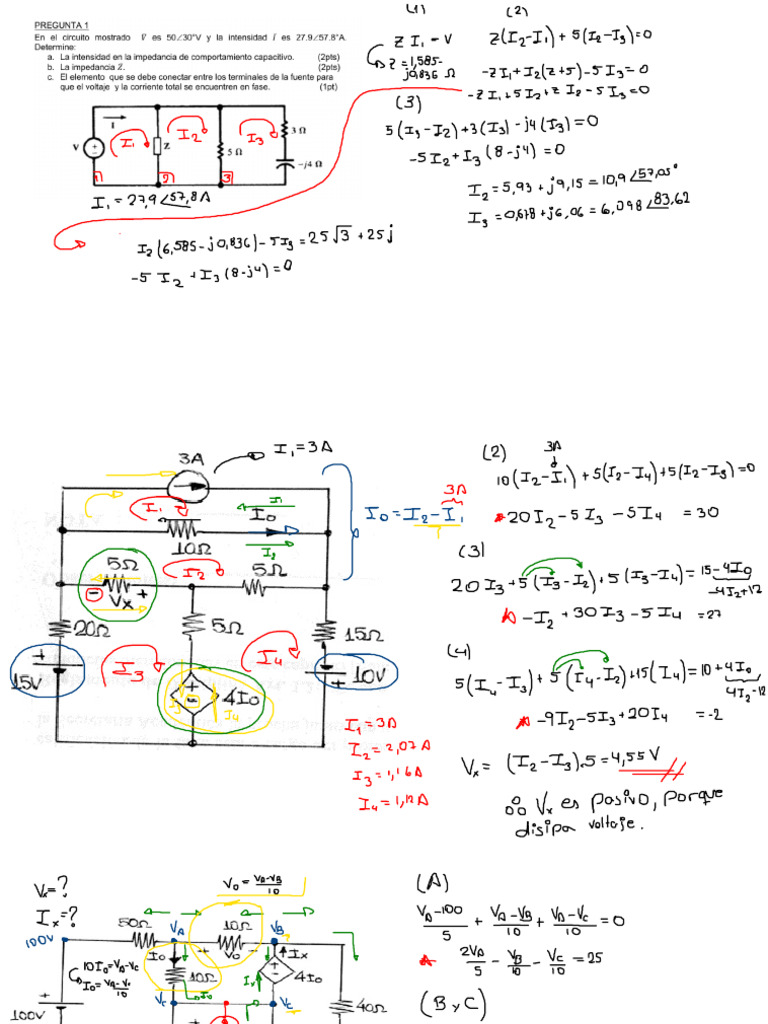 PREGUNTA 1
En el circuito mostrado V es 50∠30°V y la intensidad I es 27.9∠57.8°A.
Determine:
a. La intensidad en la impedancia de comportamiento capacitivo. (2pts)
b. La impedancia Z. (2pts)
c. El elemento que se debe conectar entre los terminales de la fuente para
que el voltaje y la corriente total se encuentren en fase. (1pt)
I
V
Z
5 Ω
3 Ω
-j4 Ω
I1
I2
I3
1
2
3
I1 = 27,9 ∠57,8 A
(1)
Z I1 = V
Z = 1,585-
j0,836 Ω
(2)
Z(I2-I1) + 5(I2-I3) = 0
-ZI1 + I2(Z+5) - 5I3 = 0
-ZI1 + 5I2 + ZI2 - 5I3 = 0
(3)
5(I3-I2) + 3(I3) - j4(I3) = 0
-5I2 + I3(8-j4) = 0
I2 = 5,93 + j9,15 = 10,9 ∠57,05°
I3 = 0,678 + j6,06 = 6,098 ∠83,62
I2(6,585 - j0,836) - 5I3 = 25√3 + 25j
-5I2 + I3(8-j4) = 0
3A
I1 = 3A
I1
I1
I0
10Ω
I2
I0 = I2 - I1
3A
5Ω
- Vx +
I2
5Ω
20Ω
5Ω
15Ω
I3
I4
15V
4I0
10V
I3
I4
I1 = 3A
I2 = 2,07A
I3 = 1,16A
I4 = 1,12A
(2)
3A
10(I2-I1) + 5(I2-I4) + 5(I2-I3) = 0
20I2 - 5I3 - 5I4 = 30
(3)
20I3 + 5(I3-I2) + 5(I3-I4) = 15 - 4I0
-4I2+12
-I2 + 30I3 - 5I4 = 27
(4)
5(I4-I3) + 5(I4-I2) + 15(I4) = 10 + 4I0
4I2-12
-9I2 - 5I3 + 20I4 = -2
Vx = (I2-I3).5 = 4,55 V
∴ Vx es posivo, porque
disipa voltaje.
Vx = ?
Ix = ?
V0 = VA-VB/10
100V
50Ω
VA
10Ω
VB
V0
I0
Ix
10I0 = VA-VC
I0 = VA-VC/10
10Ω
I0
Ix
4I0
VC
VC
40Ω
100V
(A)
VA-100/5 + VA-VB/10 + VA-VC/10 = 0
2VA/5 - VB/10 - VC/10 = 25
(B y C)